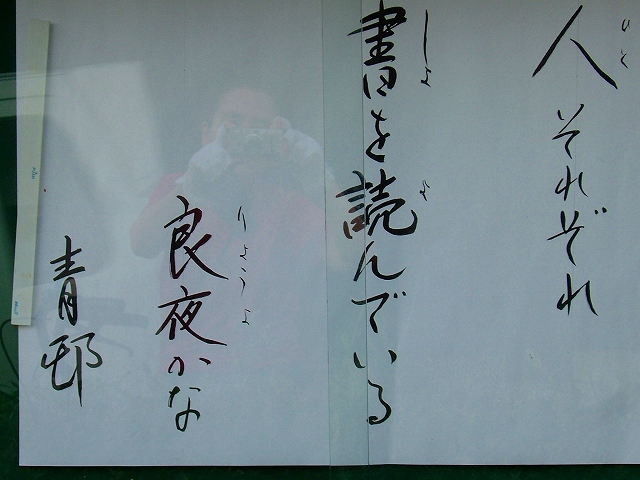 人それぞれ
ひと
書を読んでいる
しょ
よ
良夜かな
りょうよ
青邨